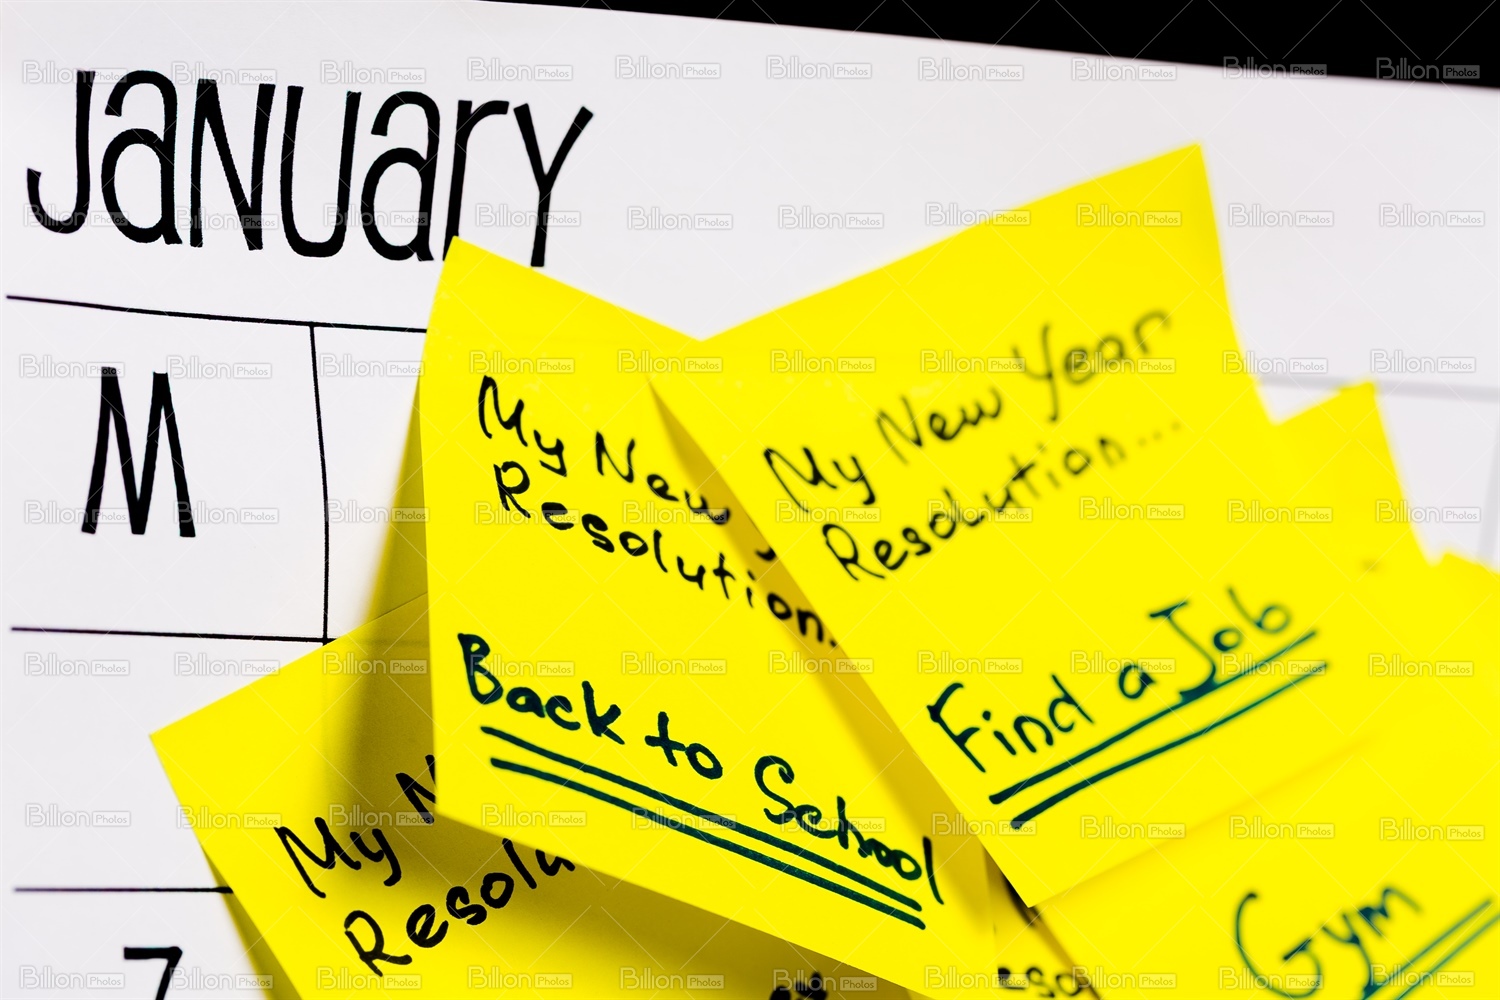 January
M
7
My New
Resolution.
Back to School
My New Year
Resolution...
Find a Job
My
Gym
Billion Photos